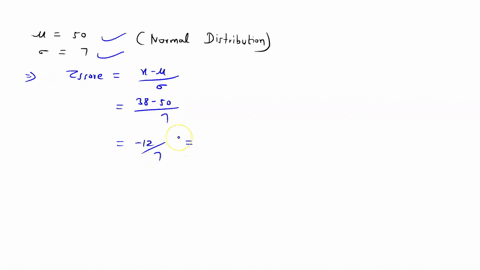 μ = 50 (Normal Distribution)
σ = 7
⇒ Zscore = x-μ/σ
= 38-50/7
= -12/7 =